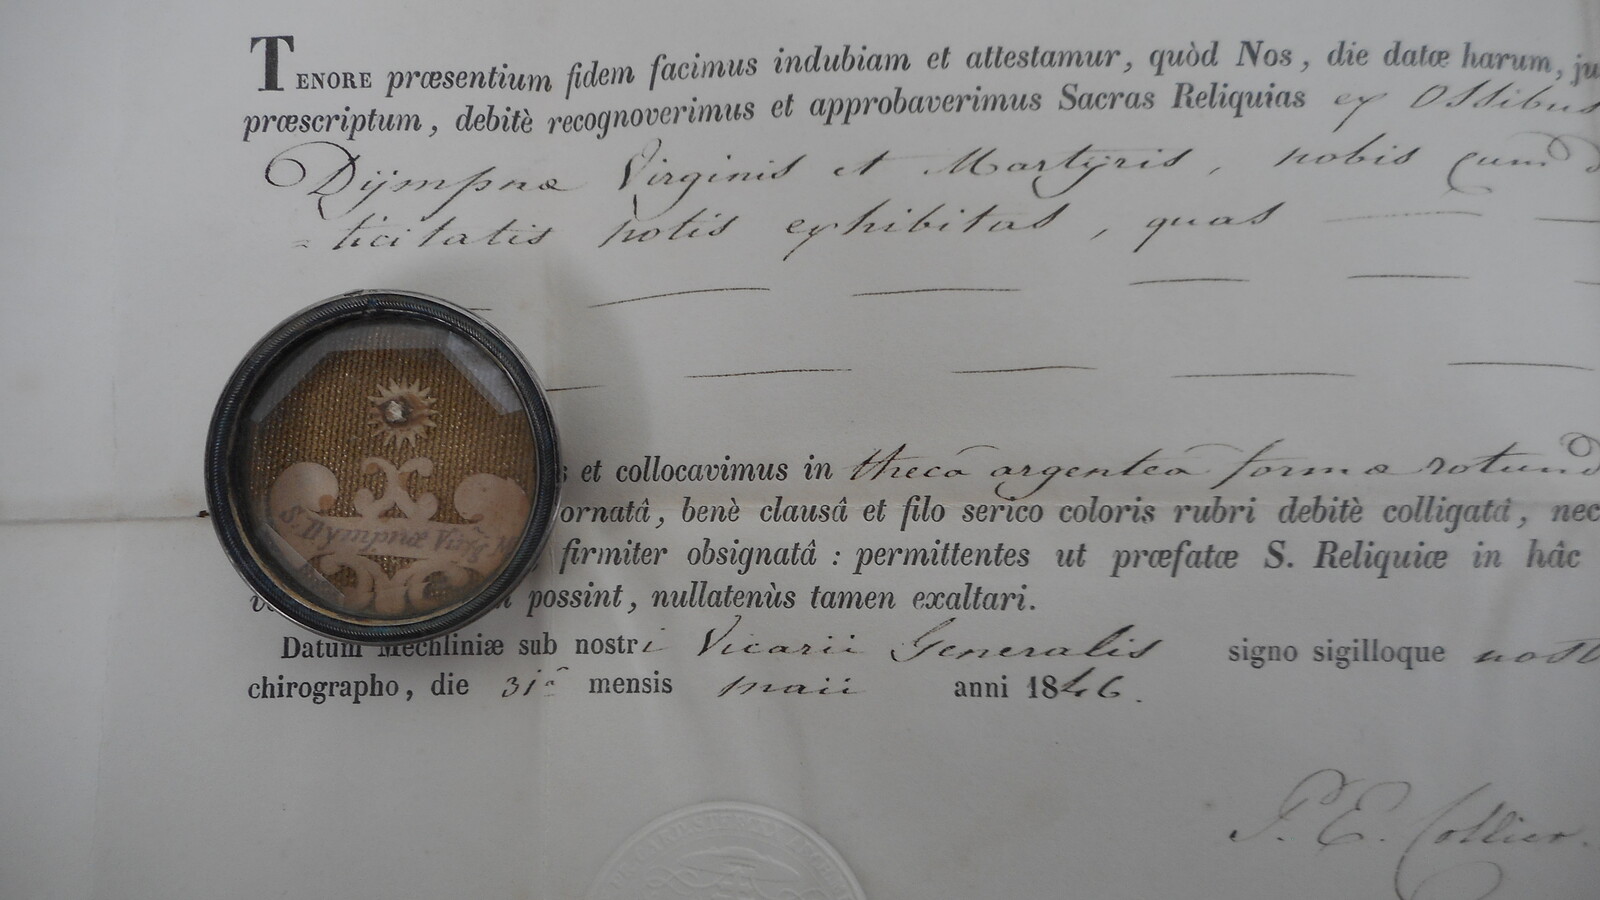 TENORE præsentium fidem facimus indubiam et attestamur, quòd Nos, die datæ harum, ju
præscriptum, debitè recognoverimus et approbaverimus Sacras Reliquias ex Ossibus
Dÿmpnæ Virginis et Martÿris, nobis cum
=ticitatis notis exhibitas, quas
s et collocavimus in thecâ argenteâ formæ rotund
ornatâ, benè clausâ et filo serico coloris rubri debitè colligatâ, nec
firmiter obsignatâ : permittentes ut præfatæ S. Reliquiæ in hâc
possint, nullatenùs tamen exaltari.
Datum Mechliniæ sub nostri Vicarii Generalis signo sigilloque nost
chirographo, die 31â mensis maii anni 1846.
S. Dympnæ Virg M
P. E. Collier.